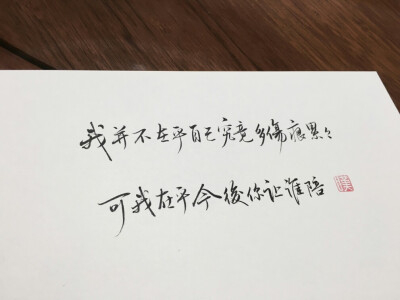 我并不在乎自己究竟多傷痕累々
可我在乎今後你让谁陪